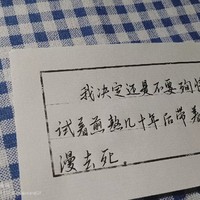 我决定还是不要殉情
试着煎熬几十年后带着
漫去死。